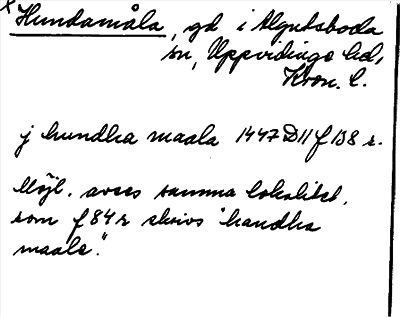 x Hundamåla, gd i Algutsboda
sn, Uppvidinge hd,
Kron. l.
j hundha maala 1447 D11 f 138 r.
Möjl. avses samma lokalitet,
som f 84 r skrivs "handha
maala".